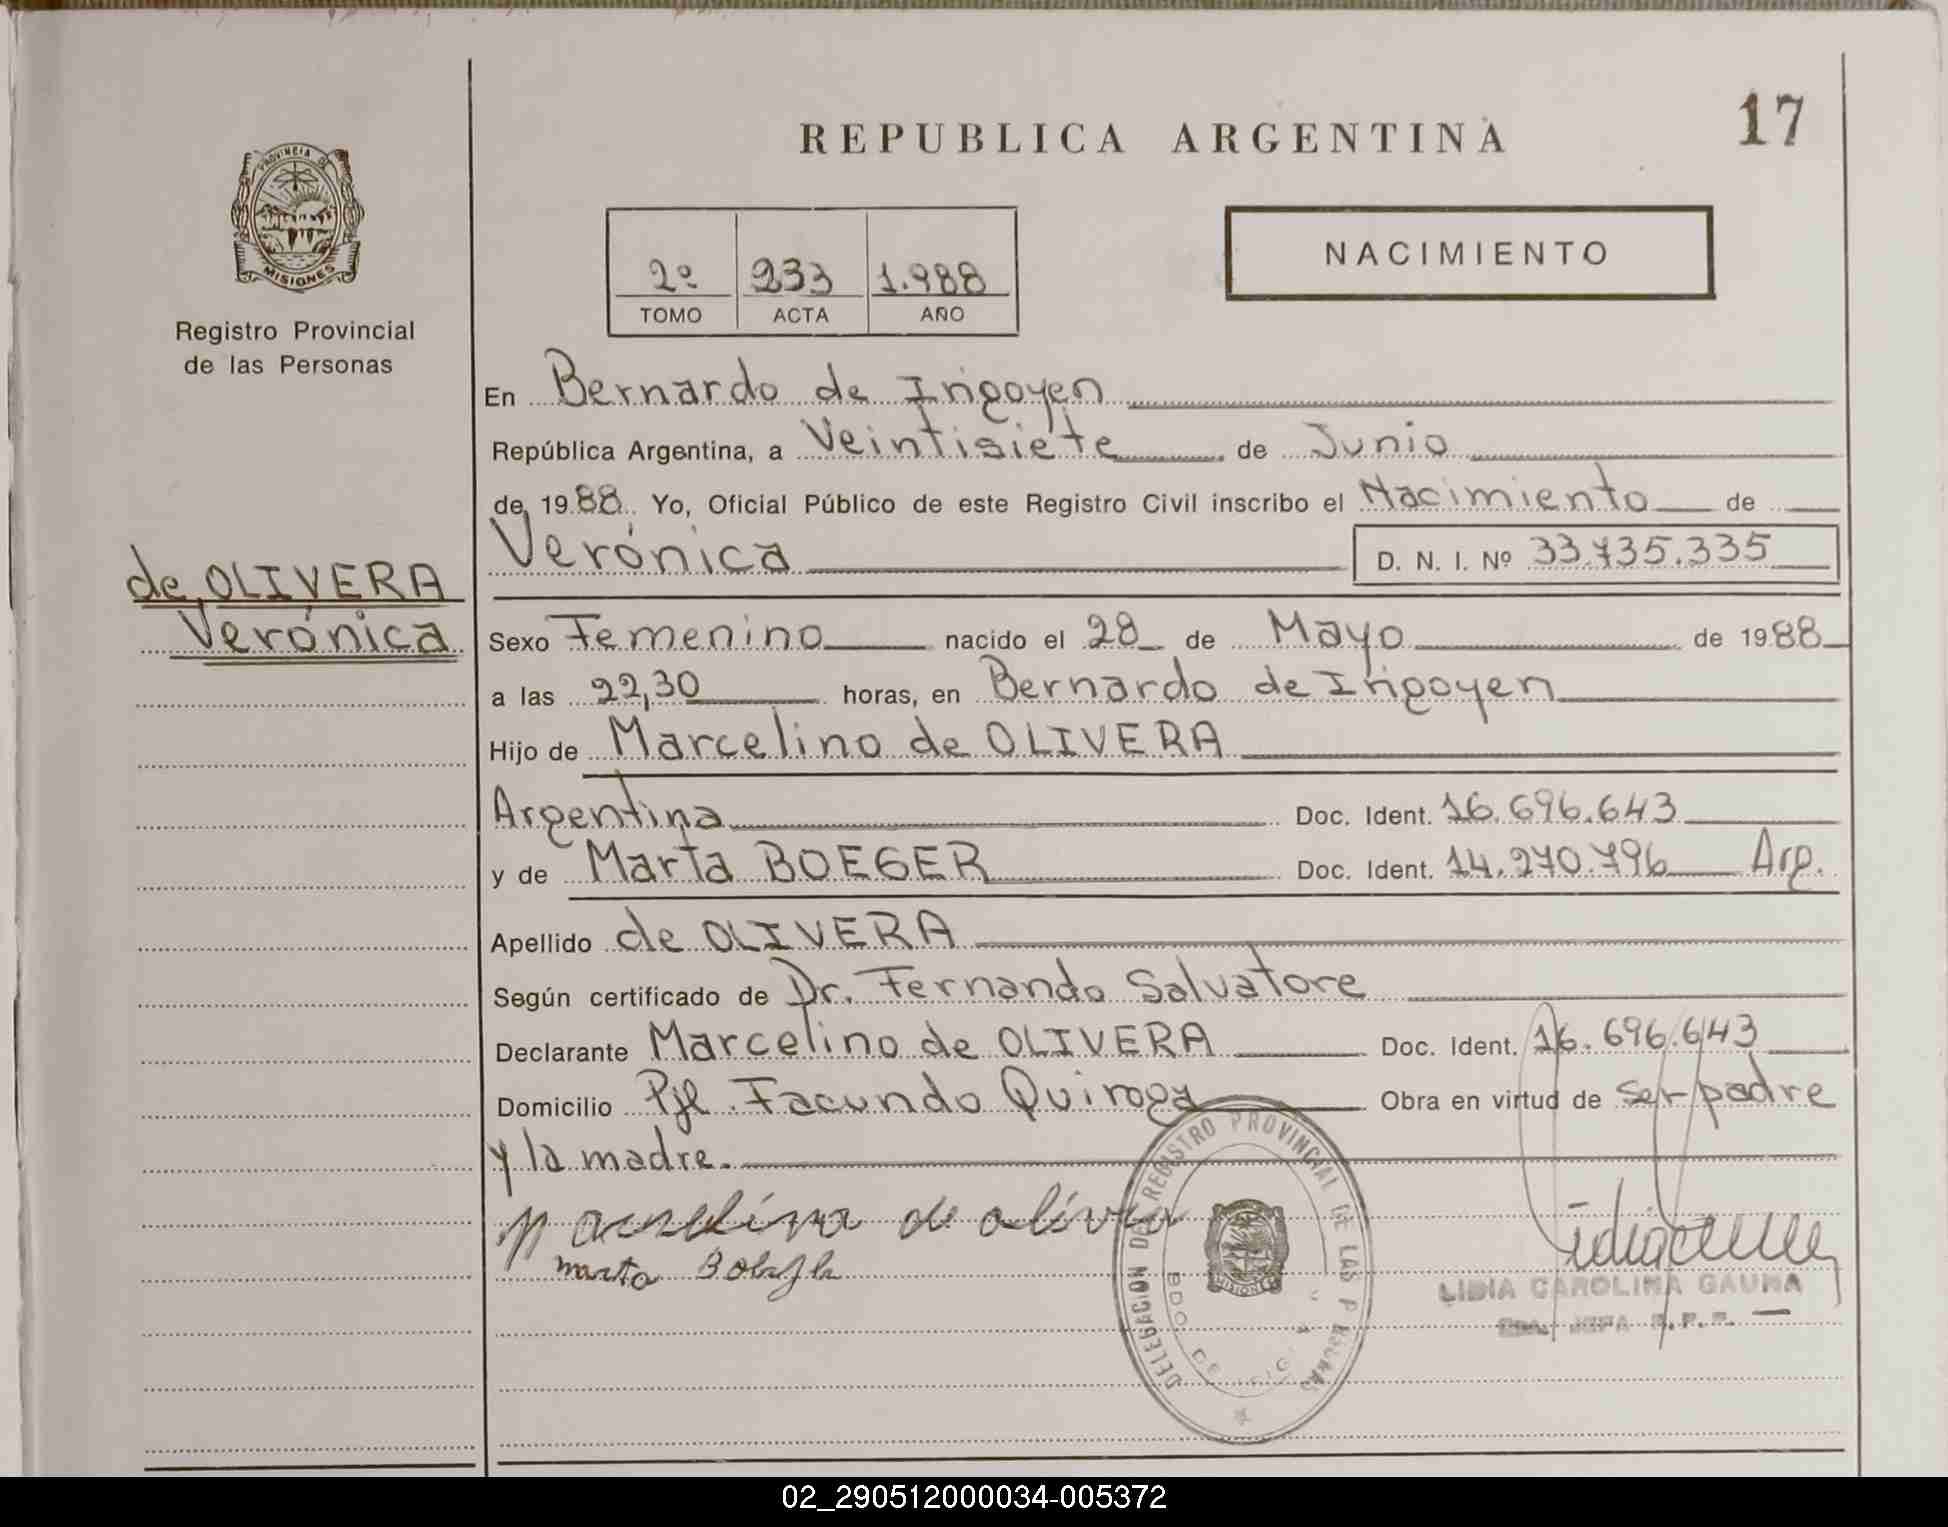 17
REPUBLICA ARGENTINA
PROVINCIA DE
MISIONES
Registro Provincial
de las Personas
2º 233 1.988
TOMO ACTA AÑO
NACIMIENTO
En Bernardo de Irigoyen
República Argentina, a Veintisiete de Junio
de 1988 Yo, Oficial Público de este Registro Civil inscribo el Nacimiento de
Verónica D. N. I. Nº 33.735.335
de OLIVERA
Verónica
Sexo Femenino nacido el 28 de Mayo de 1988
a las 22,30 horas, en Bernardo de Irigoyen
Hijo de Marcelino de OLIVERA
Argentina Doc. Ident. 16.696.643
y de Marta BOEGER Doc. Ident. 14.270.796 Arg.
Apellido de OLIVERA
Según certificado de Dr. Fernando Salvatore
Declarante Marcelino de OLIVERA Doc. Ident. 16.696.643
Domicilio Pje. Facundo Quiroga Obra en virtud de ser padre
y la madre.
Marcelino de olivera
marta
DELEGACION DEL REGISTRO PROVINCIAL DE LAS PERSONAS
BDO DE
MISIONES
LIDIA CAROLINA GAUNA
JEFA
02_290512000034-005372